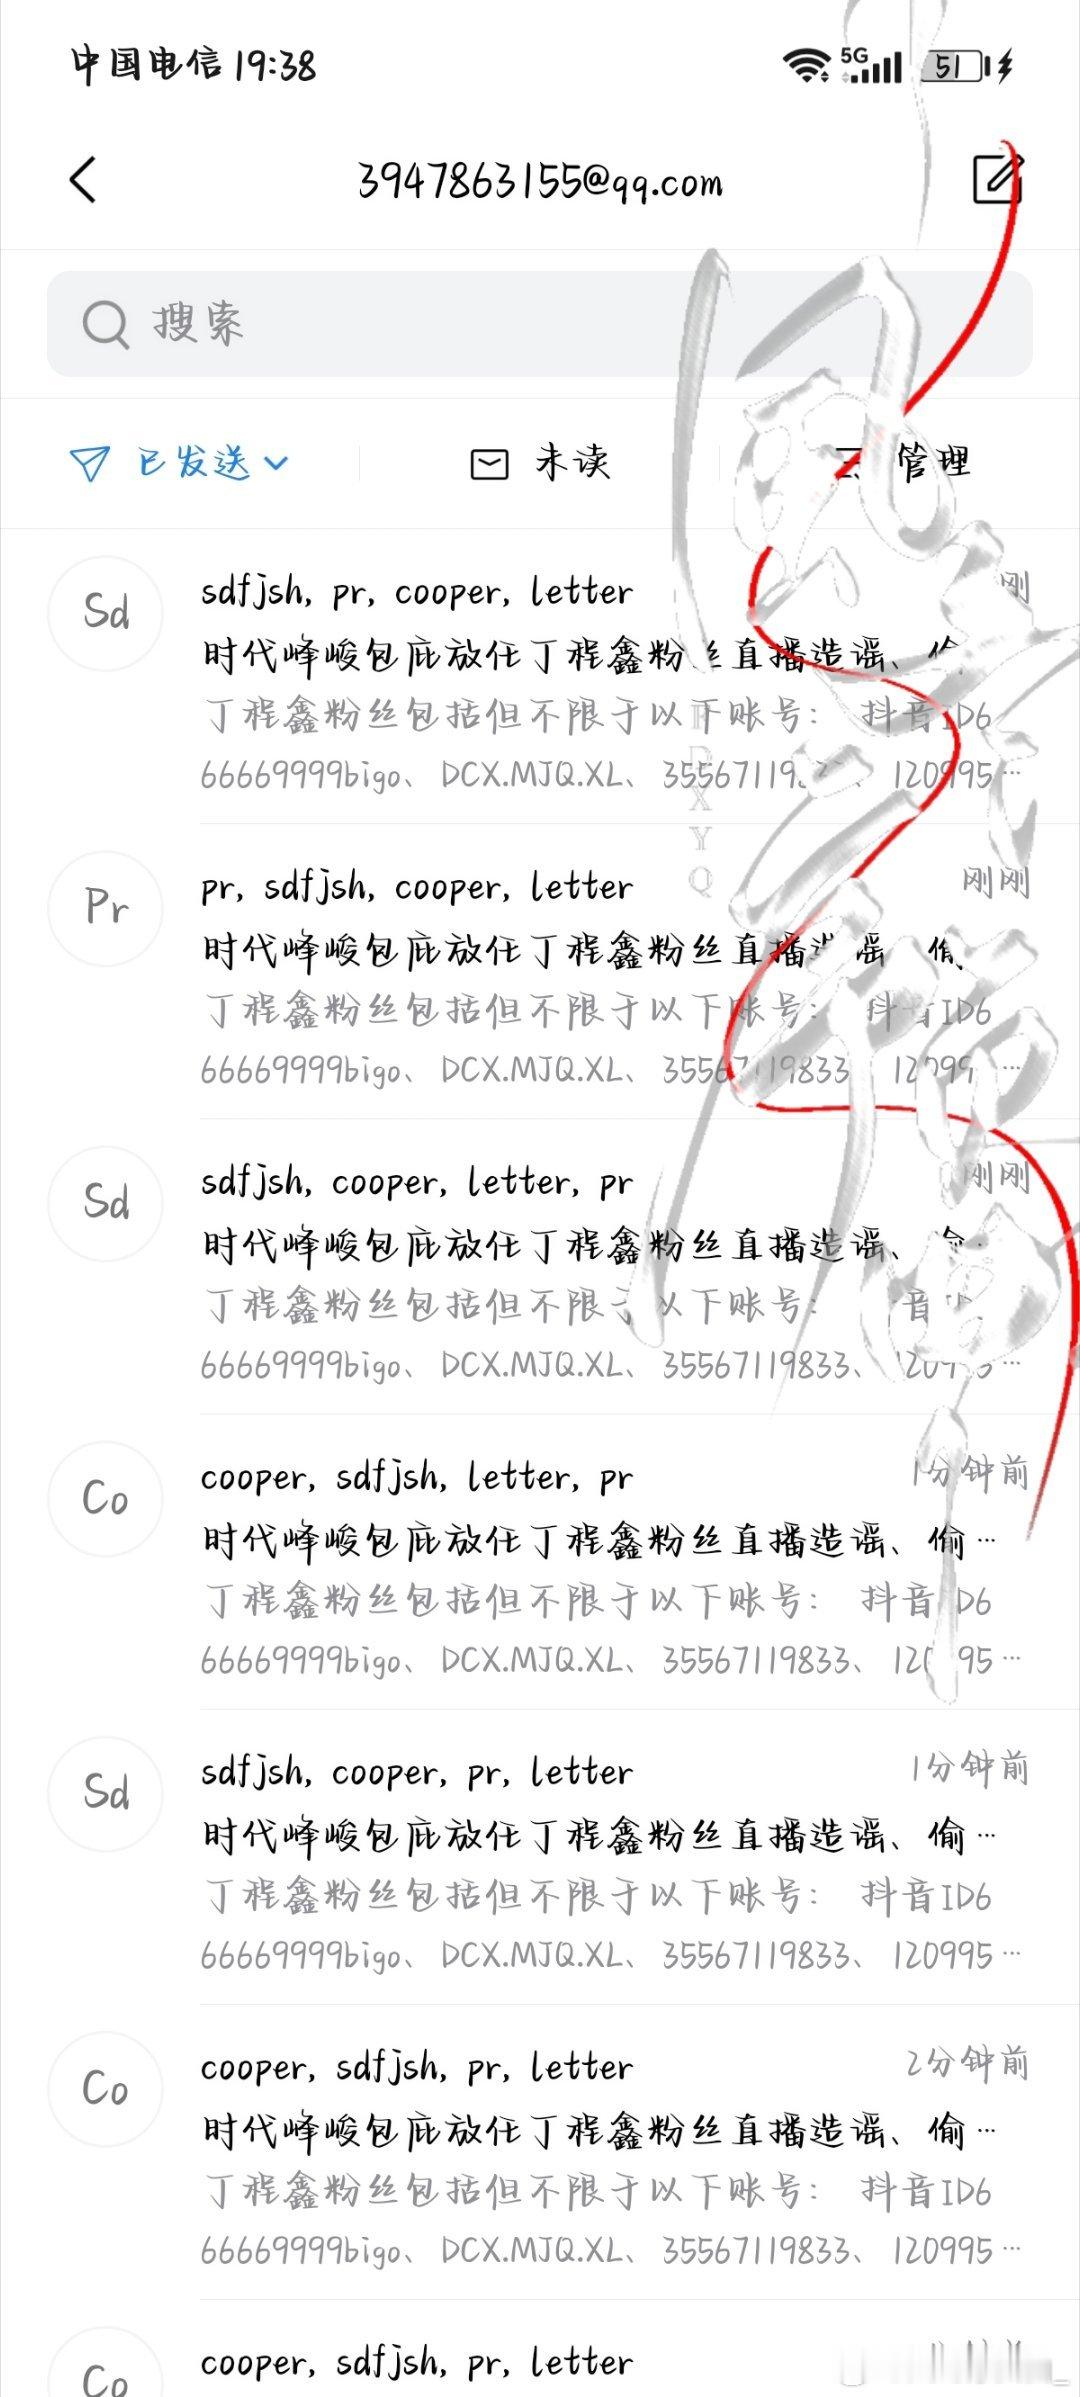 中国电信 19:38
5G 51
3947863155@qq.com
搜索
已发送 未读 管理
Sd
sdfjsh, pr, cooper, letter 刚
时代峰峻包庇放任丁程鑫粉丝直播造谣、偷
丁程鑫粉丝包括但不限于以下账号： 抖音ID6
66669999bigo、DCX.MJQ.XL、35567119833、120995…
Pr
pr, sdfjsh, cooper, letter 刚刚
时代峰峻包庇放任丁程鑫粉丝直播造谣、偷
丁程鑫粉丝包括但不限于以下账号： 抖音ID6
66669999bigo、DCX.MJQ.XL、35567119833、120995…
Sd
sdfjsh, cooper, letter, pr 刚刚
时代峰峻包庇放任丁程鑫粉丝直播造谣、偷…
丁程鑫粉丝包括但不限于以下账号： 抖音ID6
66669999bigo、DCX.MJQ.XL、35567119833、120995…
Co
cooper, sdfjsh, letter, pr 1分钟前
时代峰峻包庇放任丁程鑫粉丝直播造谣、偷…
丁程鑫粉丝包括但不限于以下账号： 抖音ID6
66669999bigo、DCX.MJQ.XL、35567119833、120995…
Sd
sdfjsh, cooper, pr, letter 1分钟前
时代峰峻包庇放任丁程鑫粉丝直播造谣、偷…
丁程鑫粉丝包括但不限于以下账号： 抖音ID6
66669999bigo、DCX.MJQ.XL、35567119833、120995…
Co
cooper, sdfjsh, pr, letter 2分钟前
时代峰峻包庇放任丁程鑫粉丝直播造谣、偷…
丁程鑫粉丝包括但不限于以下账号： 抖音ID6
66669999bigo、DCX.MJQ.XL、35567119833、120995…
Co
cooper, sdfjsh, pr, letter